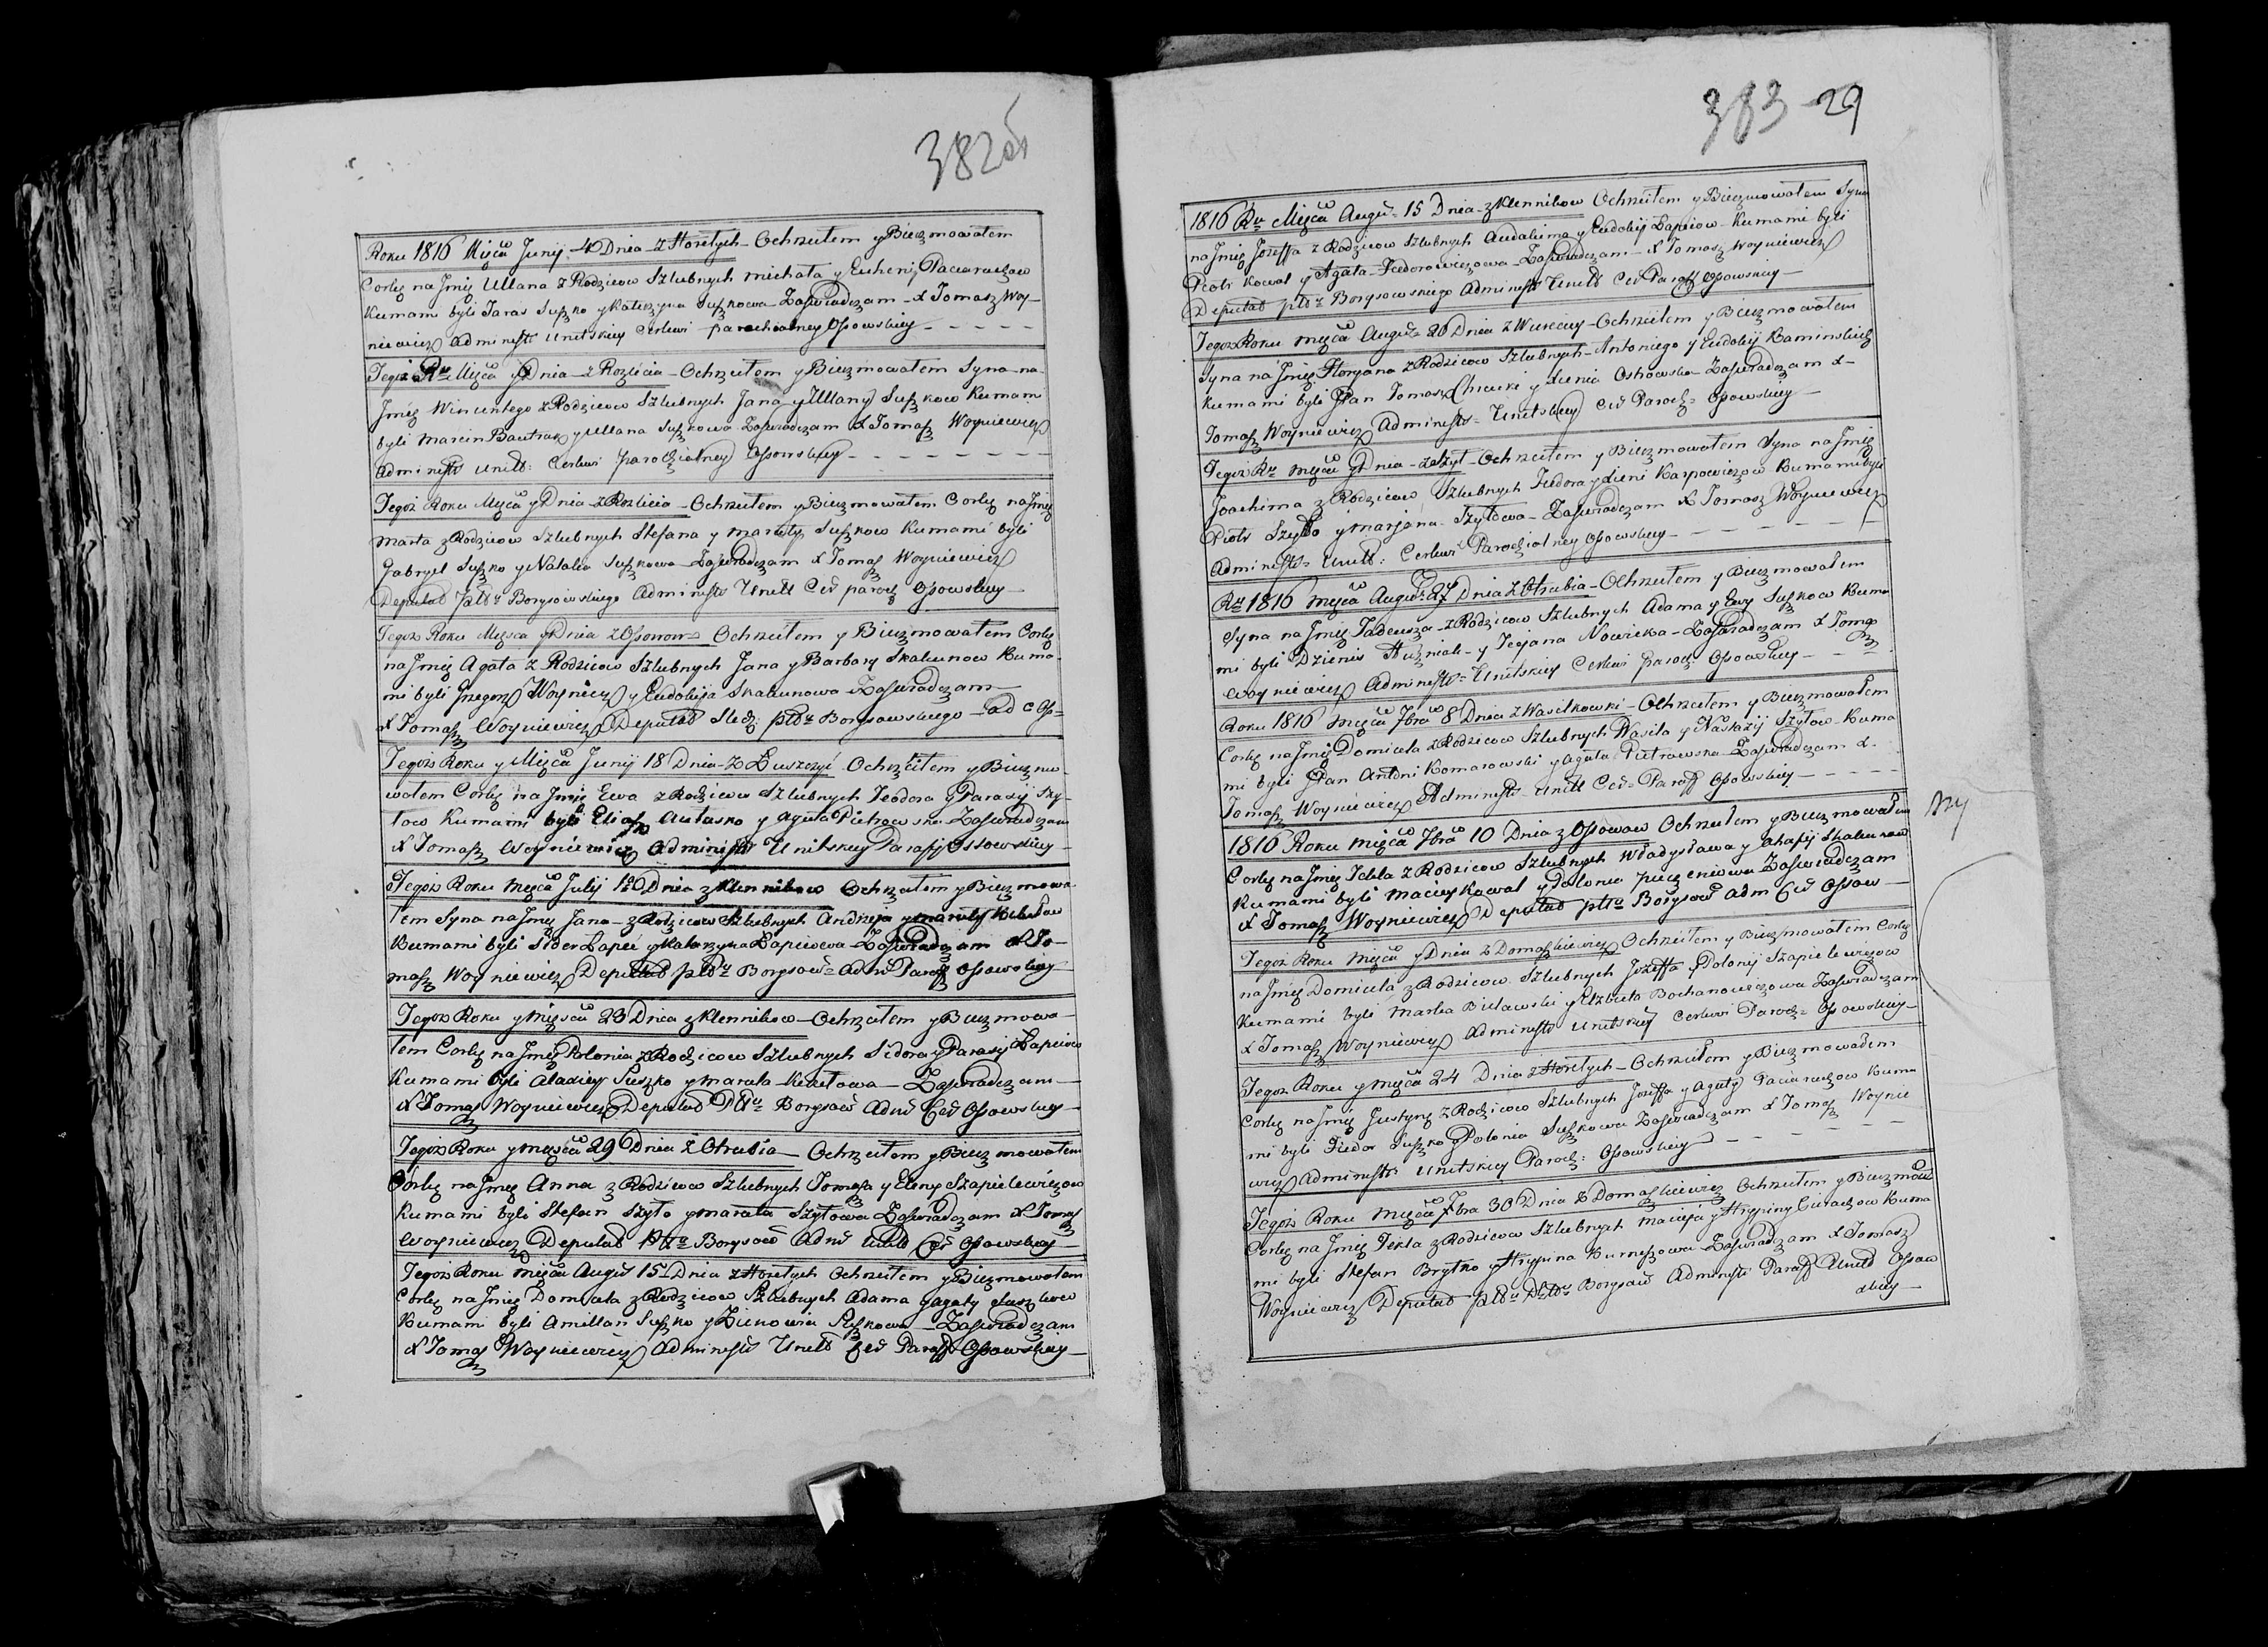 382об
Roku 1816 Mięca Junij 4 Dnia z Horełych Ochrzciłem y Bierzmowałem
Corkę na Jmię Ullana z Rodzicow Szlubnych Michała y Euhenij Paciaruchow
Kumami byli Taras Suszko y Katerzyna Suszkowa Zaświadczam X Tomasz Woy-
niewicz Administr Unitskiey Cerkwi parochialney Ossowskiey
Tegoż Ru Mięca y Dnia z Rozlicia Ochrzciłem y Bierzmowałem Syna na
Jmię Wincentego z Rodzicow Szlubnych Jana y Ullany Suszkow Kumami
byli Marcin Bautruk y Ullana Suszkowa Zaświadczam X Tomasz Woyniewicz
Administr Unitt: Cerkwi parochialney Ossowskiey
Tegoż Roku Mięca y Dnia z Rozlicia Ochrzciłem y Bierzmowałem Corkę na Jmię
Marta z Rodzicow Szlubnych Stefana y Maruty Suszkow Kumami byli
Gabryel Suszko y Natalia Suszkowa Zaświadczam X Tomasz Woyniewicz
Deputat pttu Borysowskiego Administr Unitt Cer paroch Ossowskiey
Tegoż Roku Mięsca y Dnia z Ossowow Ochrzciłem y Bierzmowałem Corkę
na Jmię Agata z Rodzicow Szlubnych Jana y Barbary Skakunow Kuma-
mi byli Grzegorz Woynicz y Eudokija Skakunowa Zaświadczam
X Tomasz Woyniewicz Deputat pttu Borysowskiego
Tegoż Roku y Mięca Junij 18 Dnia z Łuszczyc Ochrzciłem y Bierzmo-
wałem Corkę na Jmię Ewa z Rodzicow Szlubnych Teodora y Parasij Szy-
tow Kumami byli Eliasz Autasko y Agata Pietrowska Zaświadczam
X Tomasz Woyniewicz Administr Unitskiey Parafij Ossowskiey
Tegoż Roku Mięca Julij Dnia z Klennikow Ochrzciłem y Bierzmowa-
łem Syna na Jmię Jana z Rodzicow Szlubnych Andrzeja y Maruty
Kumami byli Sidor Łapec y Katarzyna Łapiecowa Zaświadczam X To-
masz Woyniewicz Deputat pttu Borysow Adm Paraf Ossowskiey
Tegoż Roku y Mięsca 23 Dnia z Klennikow Ochrzciłem y Bierzmowa-
łem Corkę na Jmię Polonia z Rodzicow Szlubnych Sidora y Parasij Łapciow
Kumami byli Alaxiey Suszko y Maruta Zaświadczam
X Tomasz Woyniewicz Deputat Pttu Borysow Adm Cer Ossowskiey
Tegoż Roku y Mięsca 29 Dnia z Otrubia Ochrzciłem y Bierzmowałem
Corkę na Jmię Anna z Rodzicow Szlubnych Tomasza y Eleny Szapielewiczow
Kumami byli Stefan Szyto y Maruta Szytowa Zaświadczam X Tomasz
Woyniewicz Deputat Pttu Borysow Adm Unitt Cer Ossowskiey
Tegoż Roku Mięca Augus 15 Dnia z Horełych Ochrzciłem y Bierzmowałem
Corkę na Jmię Domicela z Rodzicow Szlubnych Adama y Agaty
Kumami byli Amillan Suszko y Zienowia Suszkowa Zaświadczam
X Tomasz Woyniewicz Administr Unitt Cer Paraff Ossowskiey
383 29
1816 Ru Mięca Augus 15 Dnia z Klennikow Ochrzciłem y Bierzmowałem Syna
na Jmię Jozeffa z Rodzicow Szlubnych Audakima y Eudokij Łapciow Kumami byli
Piotr Kowal y Agata Fiedorowiczowa Zaświadczam X Tomasz Woyniewicz
Deputat pttu Borysowskiego Administr Unitt Cer Paraff Ossowskiey
Tegoż Roku Mięca Augus 20 Dnia z Ochrzciłem y Bierzmowałem
Syna na Jmię Floryana z Rodzicow Szlubnych Antoniego y Eudokij Kaminskich
Kumami byli Jpan Tomasz y Xienia Ostrowska Zaświadczam X
Tomasz Woyniewicz Administr Unitskiey Cer Paroch Ossowskiey
Tegoż Ru Mięca y Dnia z Ochrzciłem y Bierzmowałem Syna na Jmię
Joachima z Rodzicow Szlubnych Fiedora y Xieni Karpowiczow Kumami byli
Piotr Szytko y Marjana Szytowa Zaświadczam X Tomasz Woyniewicz
Administr Unitt: Cerkwi Parochialney Ossowskiey
Ru 1816 Mięca Augus 27 Dnia z Otrubia Ochrzciłem y Bierzmowałem
Syna na Jmię Tadeusza z Rodzicow Szlubnych Adama y Ewy Suszkow Kuma-
mi byli Dzienis y Tecjana Nowicka Zaświadczam X Tomasz
Woyniewicz Administr Unitskiey Cerkwi paroch Ossowskiey
Roku 1816 Mięca 7bra 8 Dnia z Wasilkowki Ochrzciłem y Bierzmowałem
Corkę na Jmię Domicela z Rodzicow Szlubnych Wasila y Nastazij Szytow Kuma-
mi byli Jpan Antoni Komarowski y Agata Pietrowska Zaświadczam X
Tomasz Woyniewicz Administr Unitt Cer Paraff Ossowskiey
1816 Roku Mięca 7bra 10 Dnia z Ossowow Ochrzciłem y Bierzmowałem
Corkę na Jmię Tekla z Rodzicow Szlubnych Władysława y Ahapij Skakunow
Kumami byli Maciey Kowal y Polonia Zaświadczam
X Tomasz Woyniewicz Deputat pttu Borysow Adm Cer Ossow
Tegoż Roku Mięca y Dnia z Domaszkiewicz Ochrzciłem y Bierzmowałem Corkę
na Jmię Domicela z Rodzicow Szlubnych Jozeffa y Polonij Szapielewiczow
Kumami byli Bielawski y Elzbieta Bochanowiczowa Zaświadczam
X Tomasz Woyniewicz Administr Unitskiey Cerkwi Paroch Ossowskiey
Tegoż Roku y Mięca 24 Dnia z Horełych Ochrzciłem y Bierzmowałem
Corkę na Jmię Justynę z Rodzicow Szlubnych Jozeffa y Agaty Paciaruchow Kuma-
mi byli Fiedor Suszko y Polonia Suszkowa Zaświadczam X Tomasz Woynie-
wicz Administr Unitskiey Paroch: Ossowskiey
Tegoż Roku Mięca 7bra 30 Dnia z Domaszkiewicz Ochrzciłem y Bierzmował
Corkę na Jmię Tekla z Rodzicow Szlubnych Macieja y Ahrypiny Kuma-
mi byli Stefan Brytko y Ahrypina Zaświadczam X Tomasz
Woyniewicz Deputat pttu Borysow Administr Paraff Unitt Ossow
skiey